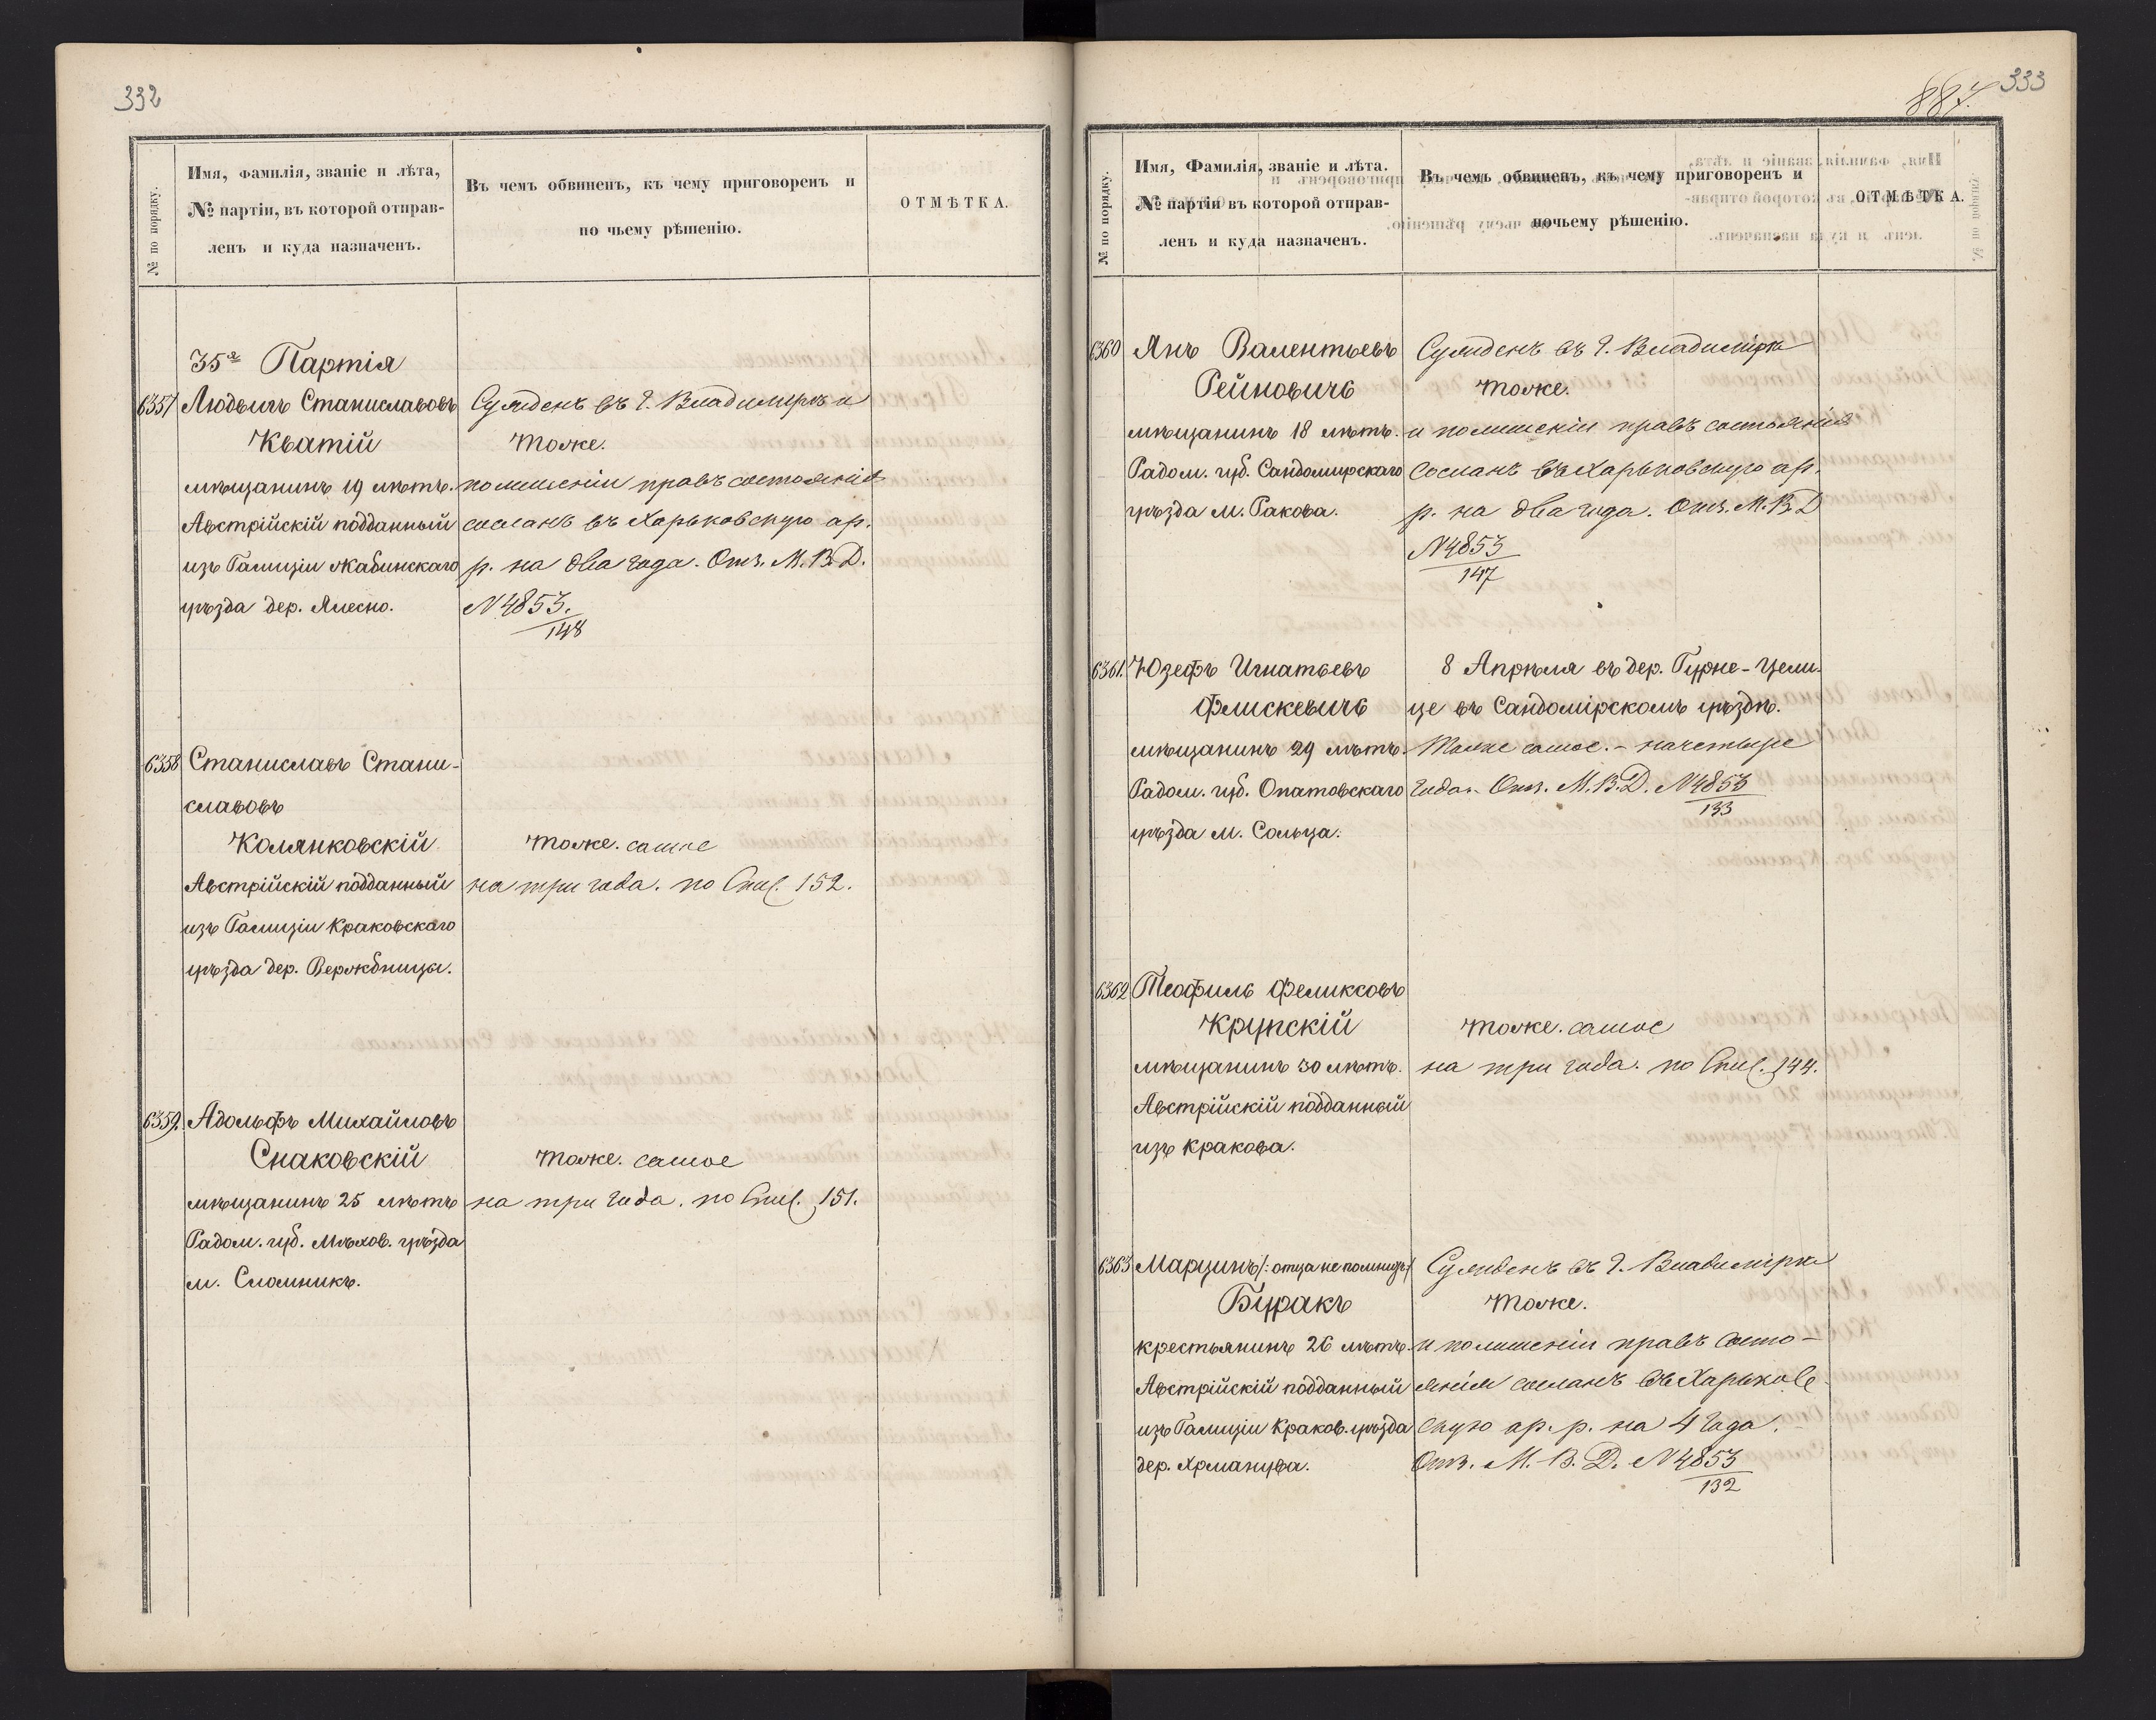 332
№ по порядку.
Имя, фамилія, званіе и лѣта,
№ партіи, въ которой отправ-
ленъ и куда назначенъ.
Въ чемъ обвиненъ, къ чему приговоренъ и
по чьему рѣшенію.
ОТМѢТКА.
35я Партія
6357 Людвигъ Станиславовъ
Кватій
мѣщанинъ 19 лѣтъ.
Австрійскій подданный
изъ Галиціи Жабинскаго
уѣзда дер. Ялесно.
Сужденъ въ г. Владимірѣ и
тоже.
по лишеніи правъ состоянія
сосланъ въ Харьковскую ар.
р. на два года. Отз. М. В. Д.
N 4853.
148
6358 Станиславъ Стани-
славовъ
Колянковскій
Австрійскій подданный
изъ Галиціи Краковскаго
уѣзда дер. Вержбницы.
тоже. самое
на три года. по Спис. 152.
6359. Адольфъ Михайловъ
Снаковскій
мѣщанинъ 25 лѣтъ
Радом. губ. Мѣхов. уѣзда
м. Сломникъ.
тоже. самое
на три года. по Спис. 151.
333
887.
№ по порядку.
Имя, Фамилія, званіе и лѣта.
№ партіи въ которой отправ-
ленъ и куда назначенъ.
Въ чемъ обвиненъ, къ чему приговоренъ и
почьему рѣшенію.
ОТМѢТКА.
6360 Янъ Валентьевъ
Рейновичъ
мѣщанинъ 18 лѣтъ.
Радом. губ. Сандомирскаго
уѣзда м. Ракова.
Сужденъ въ г. Владимірѣ
тоже.
и по лишеніи правъ состоянія
сосланъ въ Харьковскую ар.
р. на два года. Отз. М. В. Д
N 4853
147
6361. Юзефъ Игнатьевъ
Флискевичъ
мѣщанинъ 29 лѣтъ.
Радом. губ. Опатовскаго
уѣзда м. Сольца.
8 Апрѣля въ дер. Гурне-Цели-
це въ Сандомірскомъ уѣздѣ.
Тоже самое. - на четыре
года. Отз. М. В. Д. N 4853
133
6362 Теофиль Феликсовъ
Крупскій
мѣщанинъ 30 лѣтъ.
Австрійскій подданный
изъ Кракова.
тоже. самое
на три года. по Спис. 144.
6363 Марцинъ /: отца не помнитъ/
Буракъ
крестьянинъ 26 лѣтъ.
Австрійскій подданный
изъ Галиціи Краков. уѣзда
дер. Хрманува.
Сужденъ въ г. Владимірѣ
тоже.
и по лишеніи правъ состо-
янія сосланъ въ Харьков-
скую ар. р. на 4 года.
Отз. М. В. Д. N 4853
132